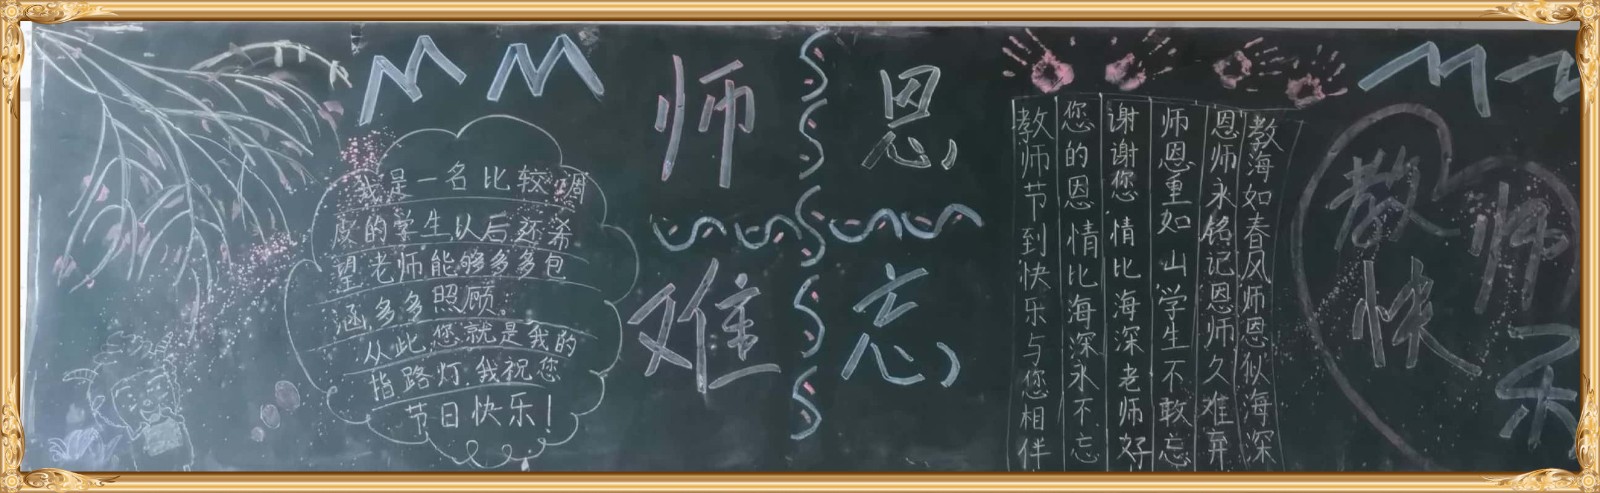 我是一名比较调
皮的学生以后还希
望老师能够多多包
涵多多照顾;
从此,您就是我的
指路灯,我祝您
节日快乐!
师恩
难忘
教海如春风师恩似海深
恩师永铭记恩师久难弃
师恩重如山学生不敢忘
谢谢您情比海深老师好
您的恩情比海深永不忘
教师节到快乐与您相伴
教师
快乐